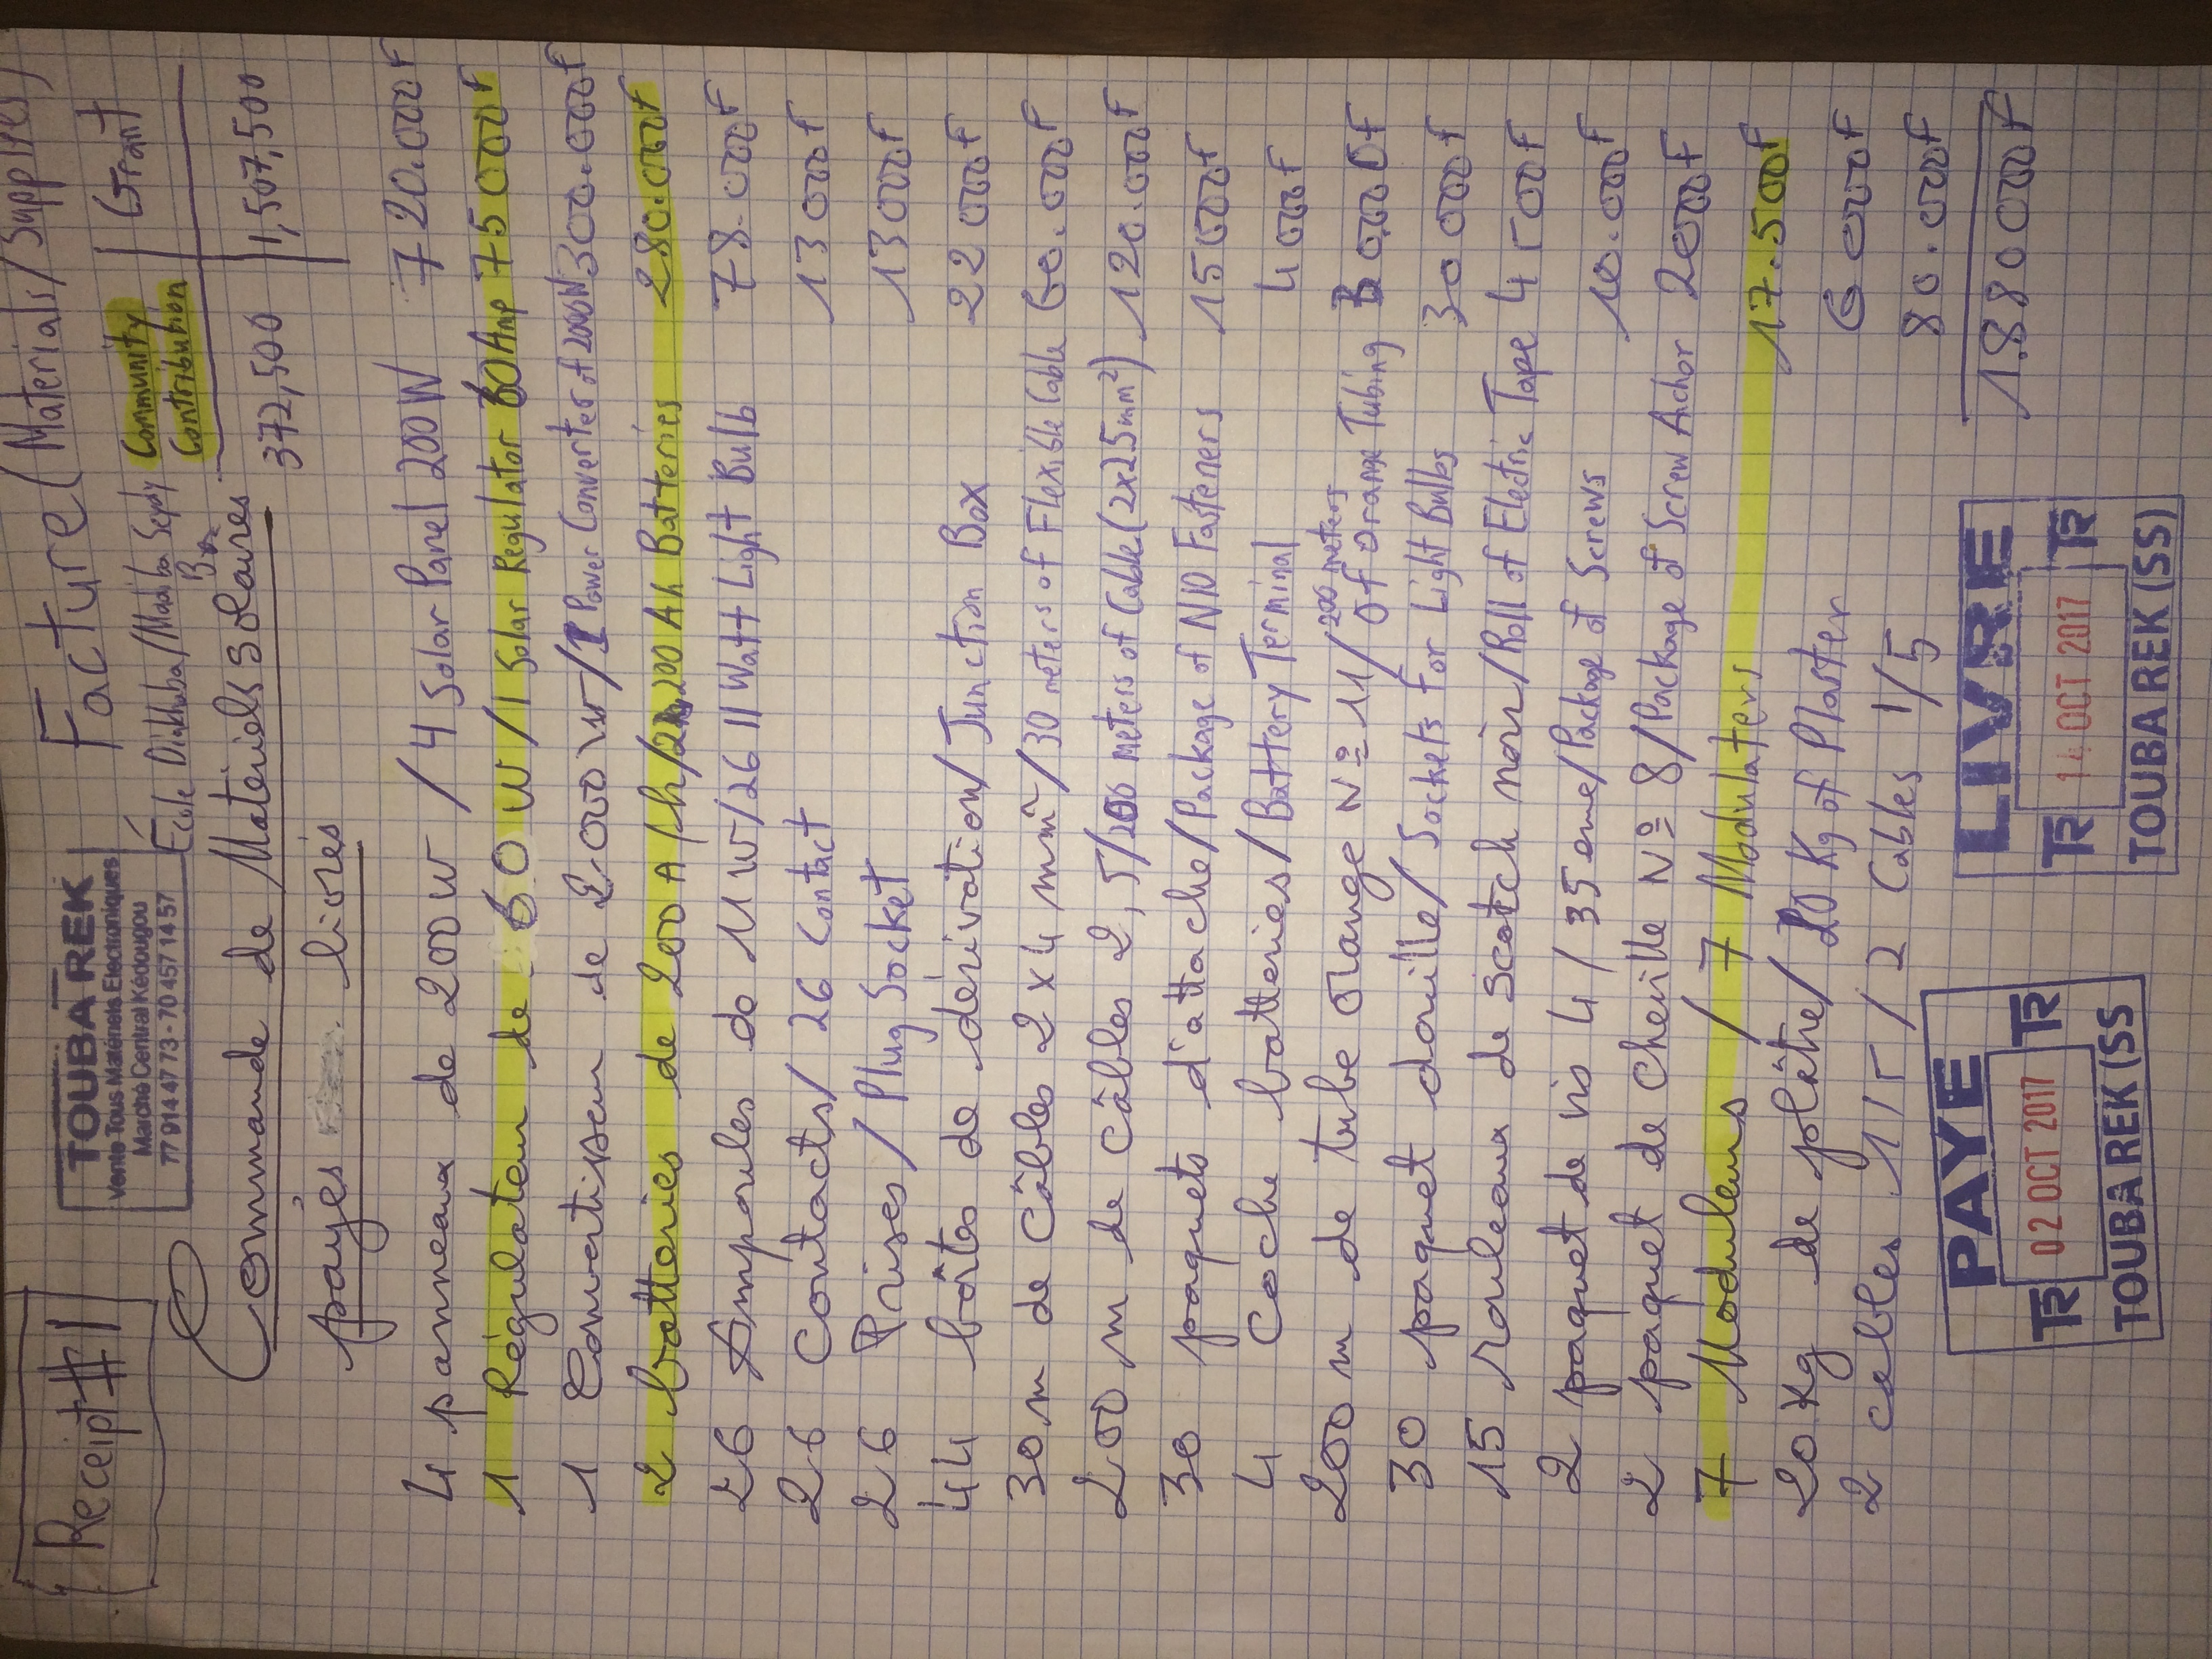 Receipt #1
Facture (Materials/Supplies)
TOUBA REK
Vente Tous Matériels Electroniques
Marché Central Kédougou
77 914 47 73 - 70 457 14 57
École Diakhaba/Madiba
Ba
Community Contribution | Grant
372,500 | 1,507,500
Commande de Matériels solaires
payés livrés
4 panneaux de 200W / 4 Solar Panel 200W 720.000F
1 Régulateur de 60W / 1 Solar Regulator 60Amp 75000F
1 Convertisseur de 2000W / 1 Power Converter of 2000W 300.000F
2 batteries de 200A/h / 2 200 Ah Batteries 280.000F
26 Ampoules de 11W / 26 11 Watt Light Bulb 78.000F
26 Contacts / 26 Contact 13000F
26 Prises / Plug Socket 13000F
44 boîtes de dérivation / Junction Box 22000F
30m de Câbles 2x4 mm² / 30 meters of Flexible Cable 60.000F
200 m de Câbles 2,5 / 200 meters of Cable (2x2.5mm²) 120.000F
30 paquets d'attache / Package of N10 Fasteners 15000F
4 Coche batteries / Battery Terminal 4000F
200 m de tube orange Nº 11 / 200 meters of Orange Tubing
30 paquet douille / Sockets for Light Bulbs 30000F
15 rouleaux de scotch noir / Roll of Electric Tape 4500F
2 paquet de vis 4/35 eme / Package of Screws 10.000F
2 paquet de Cheville Nº 8 / Package of Screw Achor 2000F
7 Moduleurs / 7 Modulaters 17.500F
20 Kg de plâtre / 20 Kg of Plaster 6000F
2 cables 1/5 / 2 Cables 1/5 80.000F
1.880000F
PAYE
TR 02 OCT 2017 TR
TOUBA REK (SS
LIVRE
TR 14 OCT 2017 TR
TOUBA REK (SS)